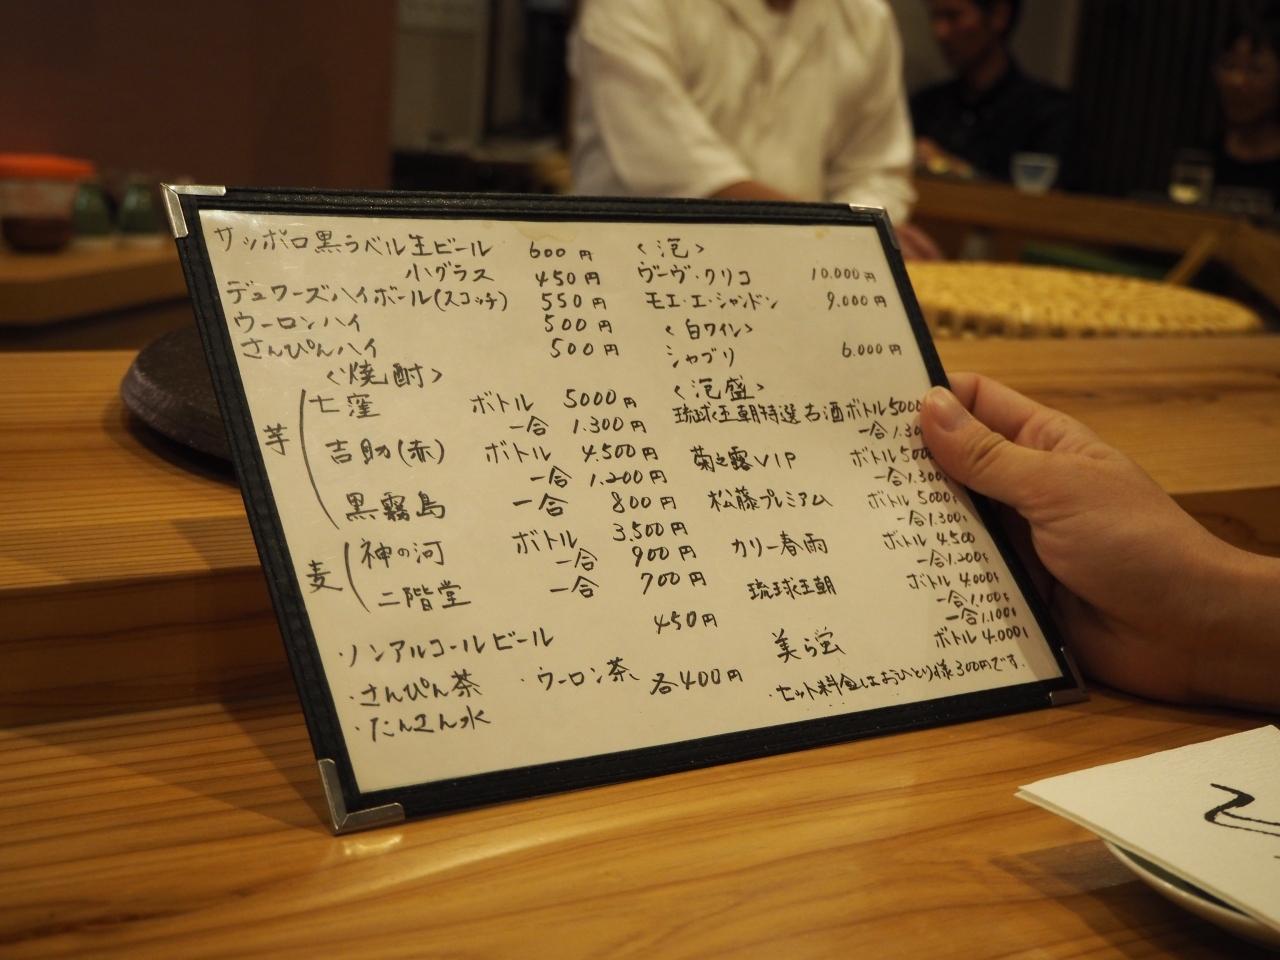 サッポロ黒ラベル生ビール 600円
小グラス 450円
デュワーズハイボール(スコッチ) 550円
ウーロンハイ 500円
さんぴんハイ 500円
<焼酎>
芋
七窪 ボトル 5000円
一合 1.300円
吉助(赤) ボトル 4.500円
一合 1.200円
黒霧島 一合 800円
麦
神の河 ボトル 3.500円
一合 900円
二階堂 一合 700円
・ノンアルコールビール 450円
・さんぴん茶 ・ウーロン茶 各400円
・たんさん水
<泡>
ヴーヴ・クリコ 10.000円
モエ・エ・シャンドン 9.000円
<白ワイン>
シャブリ 6.000円
<泡盛>
琉球王朝特選古酒 ボトル 5000
一合 1.300
菊之露VIP ボトル 5000
一合 1.300
松藤プレミアム ボトル 5000
一合 1.300
カリー春雨 ボトル 4.500
一合 1.200
琉球王朝 ボトル 4.000
一合 1.100
一合 1.100
美ら蛍 ボトル 4.000
・セット料金はおひとり様300円です.